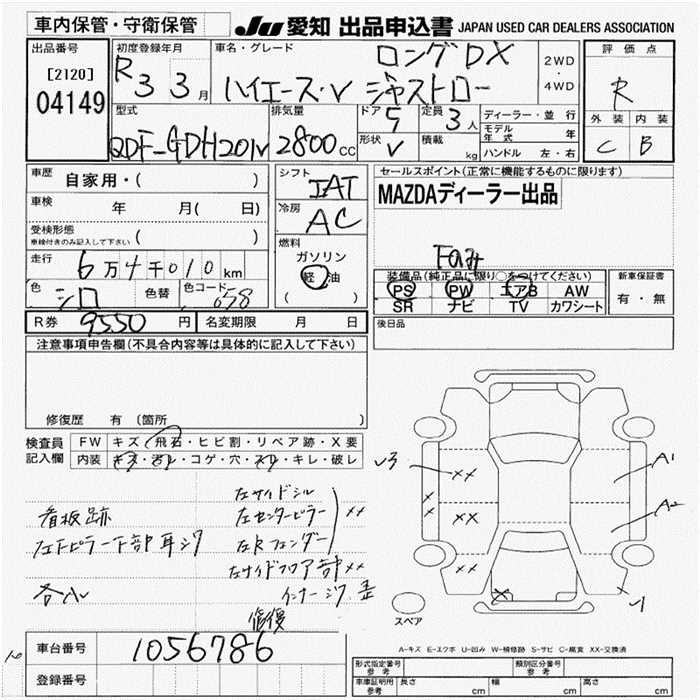 車内保管・守衛保管
JU 愛知 出品申込書 JAPAN USED CAR DEALERS ASSOCIATION
出品番号
[2120]
04149
初度登録年月
R3 3月
車名・グレード
ロングDX
ハイエース・V ジャストロー
2WD
・
4WD
評価点
R
外装 内装
C B
型式
QDF-GDH201V
排気量
2800cc
ドア
5
形状
V
定員
3人
積載
kg
ディーラー・並行
モデル年式 年
ハンドル 左・右
車歴 自家用・( )
車検 年 月( 日)
受検形態
車検付きのみ記入して下さい ( )
走行 6万4千010km
色 シロ 色替 色コード 058
R券 9550円 名変期限 月 日
シフト
IAT
冷房
AC
燃料
ガソリン
軽油
( )
セールスポイント(正常に機能するものに限ります)
MAZDAディーラー出品
Fのみ
装備品(純正品に限り○をつけてください)
PS PW エアB AW
SR ナビ TV カワシート
新車保証書
有・無
後日品
注意事項申告欄(不具合内容等は具体的に記入して下さい)
修復歴 有 〔箇所 〕
検査員
記入欄
FW キズ・飛石・ヒビ割・リペア跡・X要
内装 キズ・汚レ・コゲ・穴・スレ・キレ・破レ
看板跡
左Fピラー下部耳ジワ
各小
左サイドシル
左センターピラー
左Rフェンダー
××
左サイドフロア部××
インナージワ 歪
修復
√3
××
××
××
×
×
×
A1
A2
√1
スペア
A-キズ E-エクボ U-凹み W-補修跡 S-サビ C-腐食 XX-交換済
車台番号 1056786
登録番号
形式指定番号
参考
類別区分番号
参考
車庫証明用
参考
長さ cm 幅 cm 高さ cm